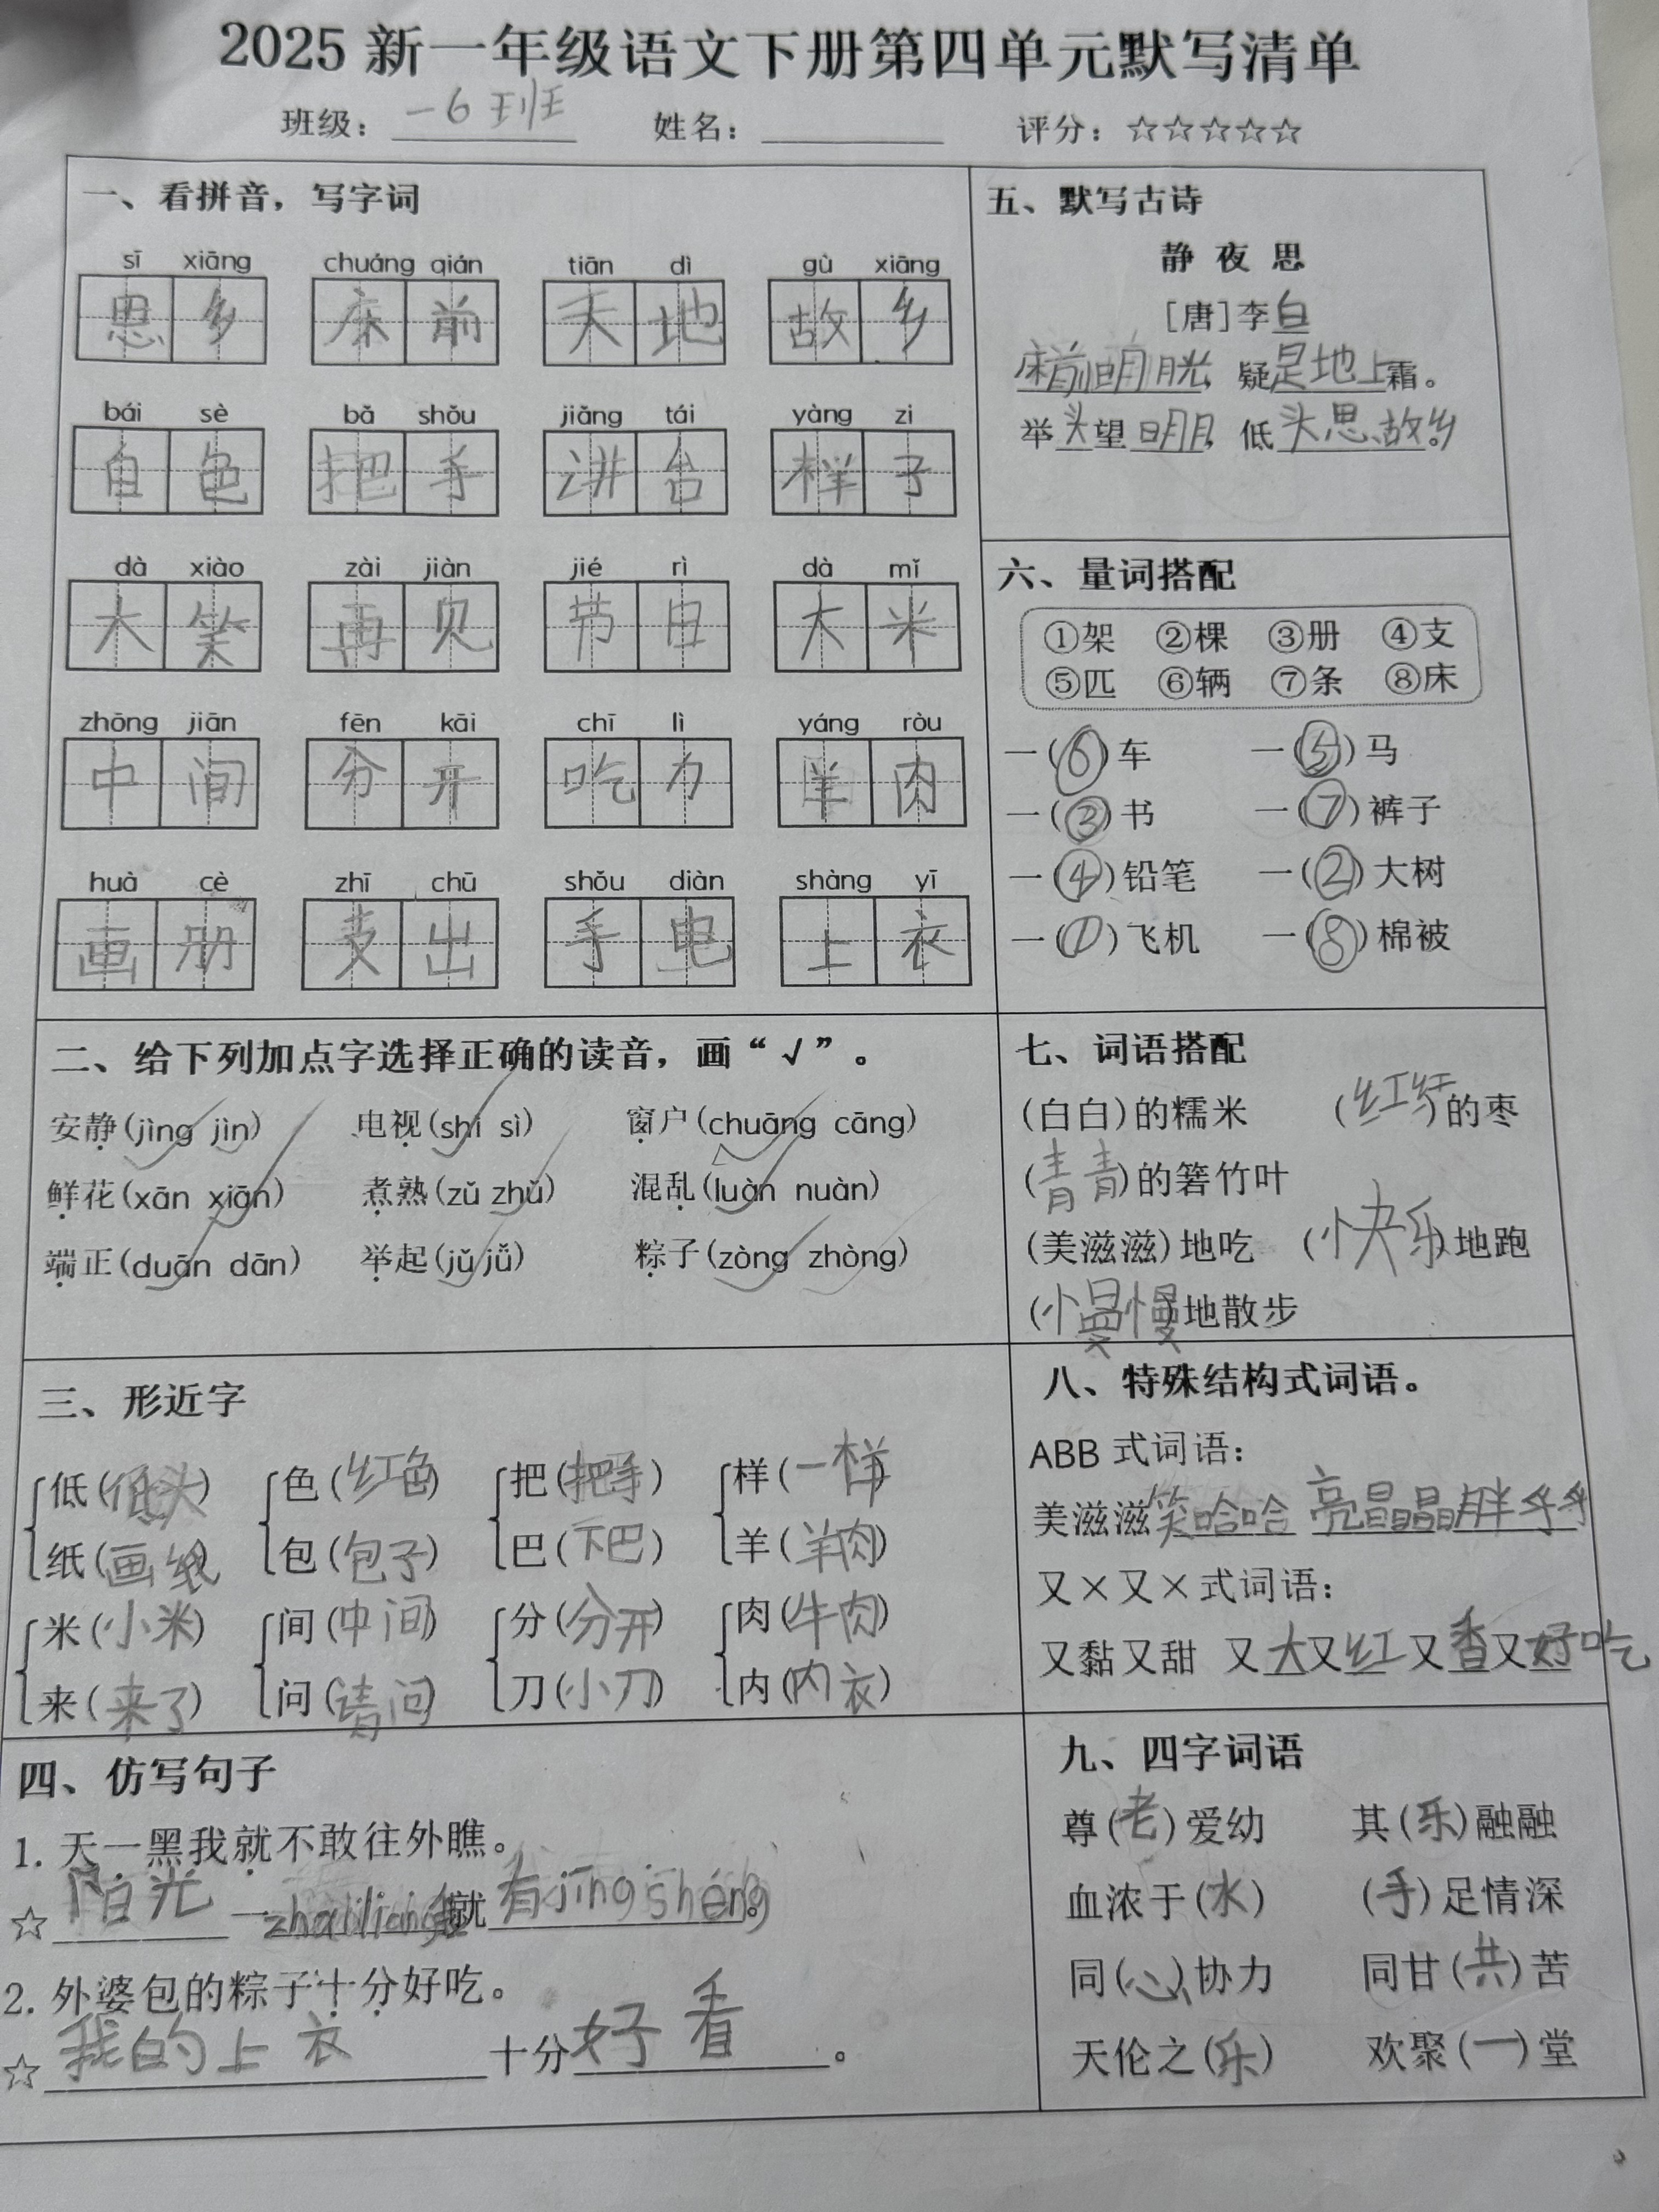 2025新一年级语文下册第四单元默写清单
班级：一6班 姓名： 评分：☆☆☆☆☆
一、看拼音，写字词
sī xiāng chuáng qián tiān dì gù xiāng
思乡 床前 天地 故乡
bái sè bǎ shǒu jiǎng tái yàng zi
白色 把手 讲台 样子
dà xiào zài jiàn jié rì dà mǐ
大笑 再见 节日 大米
zhōng jiān fēn kāi chī lì yáng ròu
中间 分开 吃力 羊肉
huà cè zhī chū shǒu diàn shàng yī
画册 支出 手电 上衣
二、给下列加点字选择正确的读音，画“√”。
安静(jìng jìn) 电视(shì sì) 窗户(chuāng cāng)
鲜花(xān xiān) 煮熟(zǔ zhǔ) 混乱(luàn nuàn)
端正(duān dān) 举起(jǔ jǚ) 粽子(zòng zhòng)
三、形近字
低(低头) 色(红色) 把(把手) 样(一样)
纸(画纸) 包(包子) 巴(下巴) 羊(羊肉)
米(小米) 间(中间) 分(分开) 肉(牛肉)
来(来了) 问(请问) 刀(小刀) 内(内衣)
四、仿写句子
1. 天一黑我就不敢往外瞧。
☆阳光一 就有jīng shén。
2. 外婆包的粽子十分好吃。
☆我的上衣十分好看。
五、默写古诗
静夜思
[唐]李白
床前明月光，疑是地上霜。
举头望明月，低头思故乡。
六、量词搭配
①架 ②棵 ③册 ④支
⑤匹 ⑥辆 ⑦条 ⑧床
一(⑥)车 一(⑤)马
一(③)书 一(⑦)裤子
一(④)铅笔 一(②)大树
一(①)飞机 一(⑧)棉被
七、词语搭配
(白白)的糯米 (红红)的枣
(青青)的箬竹叶
(美滋滋)地吃 (快乐)地跑
(慢慢)地散步
八、特殊结构式词语。
ABB式词语：
美滋滋 笑哈哈 亮晶晶 胖乎乎
又×又×式词语：
又黏又甜 又大又红 又香又好吃
九、四字词语
尊(老)爱幼 其(乐)融融
血浓于(水) (手)足情深
同(心)协力 同甘(共)苦
天伦之(乐) 欢聚(一)堂